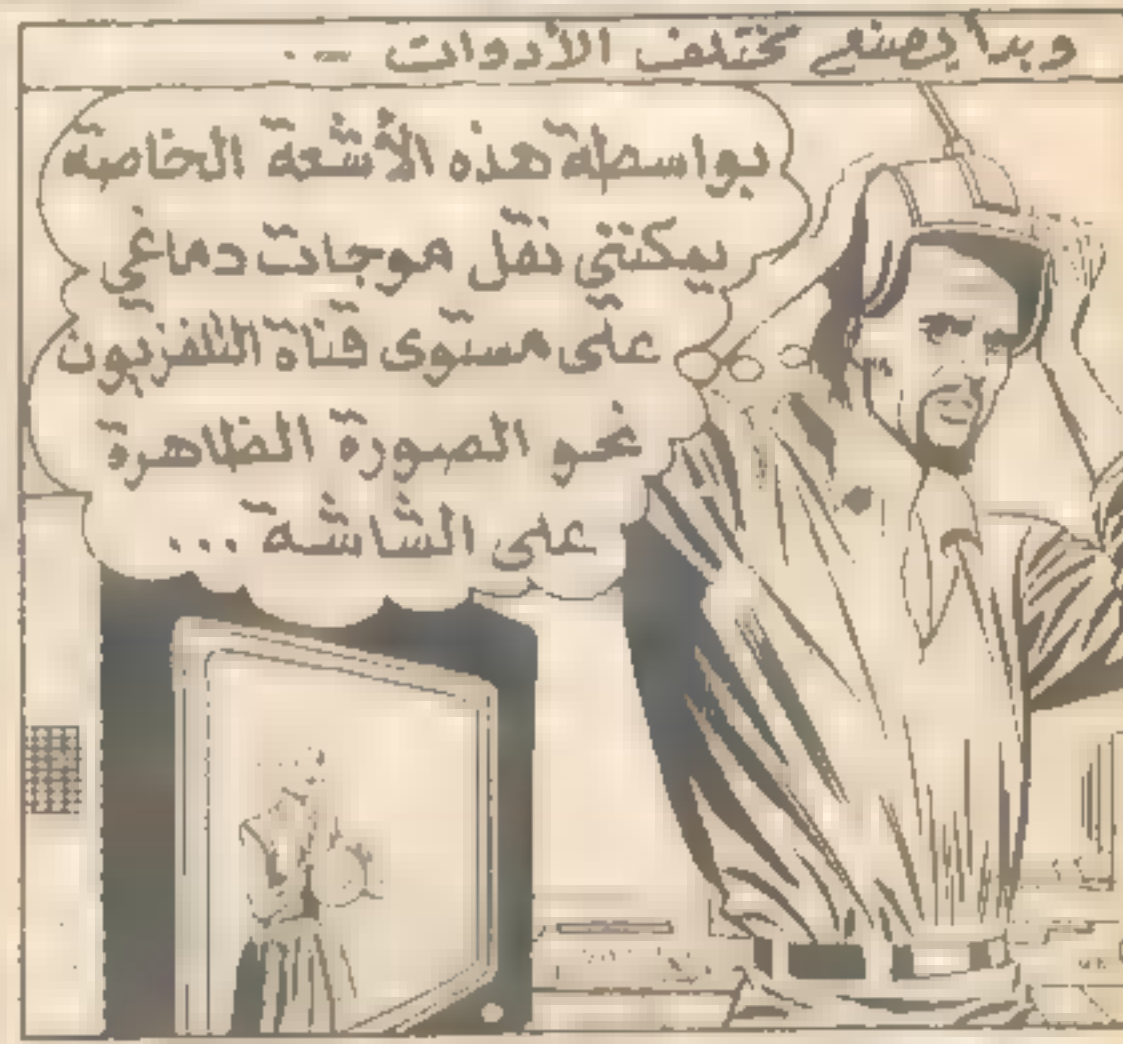 وبدأ يصنع مختلف الأدوات --.
بواسطة هذه الأشعة الخاصة
يمكنني نقل موجات دماغي
على مستوى قناة التلفزيون
نحو الصورة الظاهرة
على الشاشة ...